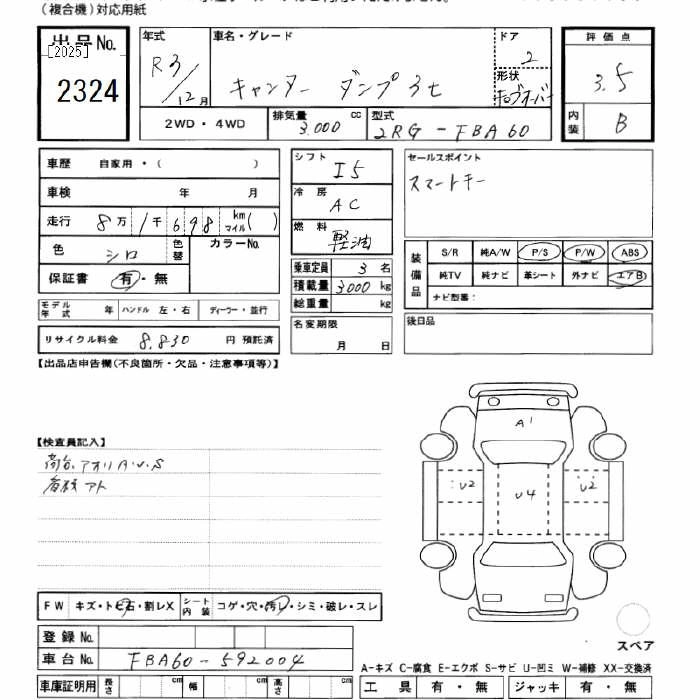 (複合機)対応用紙
出品No.
[2025]
2324
年式
R3/12月
車名・グレード
キャンター ダンプ 3t
ドア
2
形状
キャブオーバー
評価点
3.5
内装
B
2WD・4WD
排気量
3.000 cc
型式
2RG-FBA60
車歴 自家用・( )
車検 年 月
走行 8万1千698 km マイル( )
色 シロ
色替
カラーNo.
保証書 有・無
モデル年式 年 ハンドル 左・右 ディーラー・並行
リサイクル料金 8,830 円 預託済
シフト
I5
冷房
AC
燃料
軽油
乗車定員 3 名
積載量 3000 kg
総重量 kg
名変期限
月 日
セールスポイント
スマートキー
装備品
S/R 純A/W P/S P/W ABS
純TV 純ナビ 革シート 外ナビ エアB
ナビ型番:
後日品
【出品店申告欄(不良箇所・欠品・注意事項等)】
【検査員記入】
荷台、アオリ A.U.S
看板アト
A1
U2
U4
U2
FW キズ・トビ石・割レX
シート内装 コゲ・穴・汚レ・シミ・破レ・スレ
登録No.
車台No. FBA60-592004
車庫証明用 長さ cm 幅 cm 高さ cm
スペア
A-キズ C-腐食 E-エクボ S-サビ U-凹ミ W-補修 XX-交換済
工具 有・無 ジャッキ 有・無